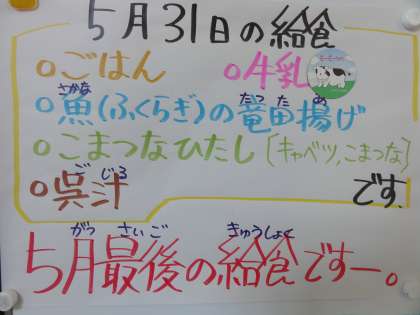 5月31日の給食
○ごはん ○牛乳
○魚(ふくらぎ)の竜田揚げ
さかな たつ た あ
○こまつなひたし〔キャベツ、こまつな〕
○呉汁 です。
ご じる
5月最後の給食ですー。
がつ さい ご きゅうしょく